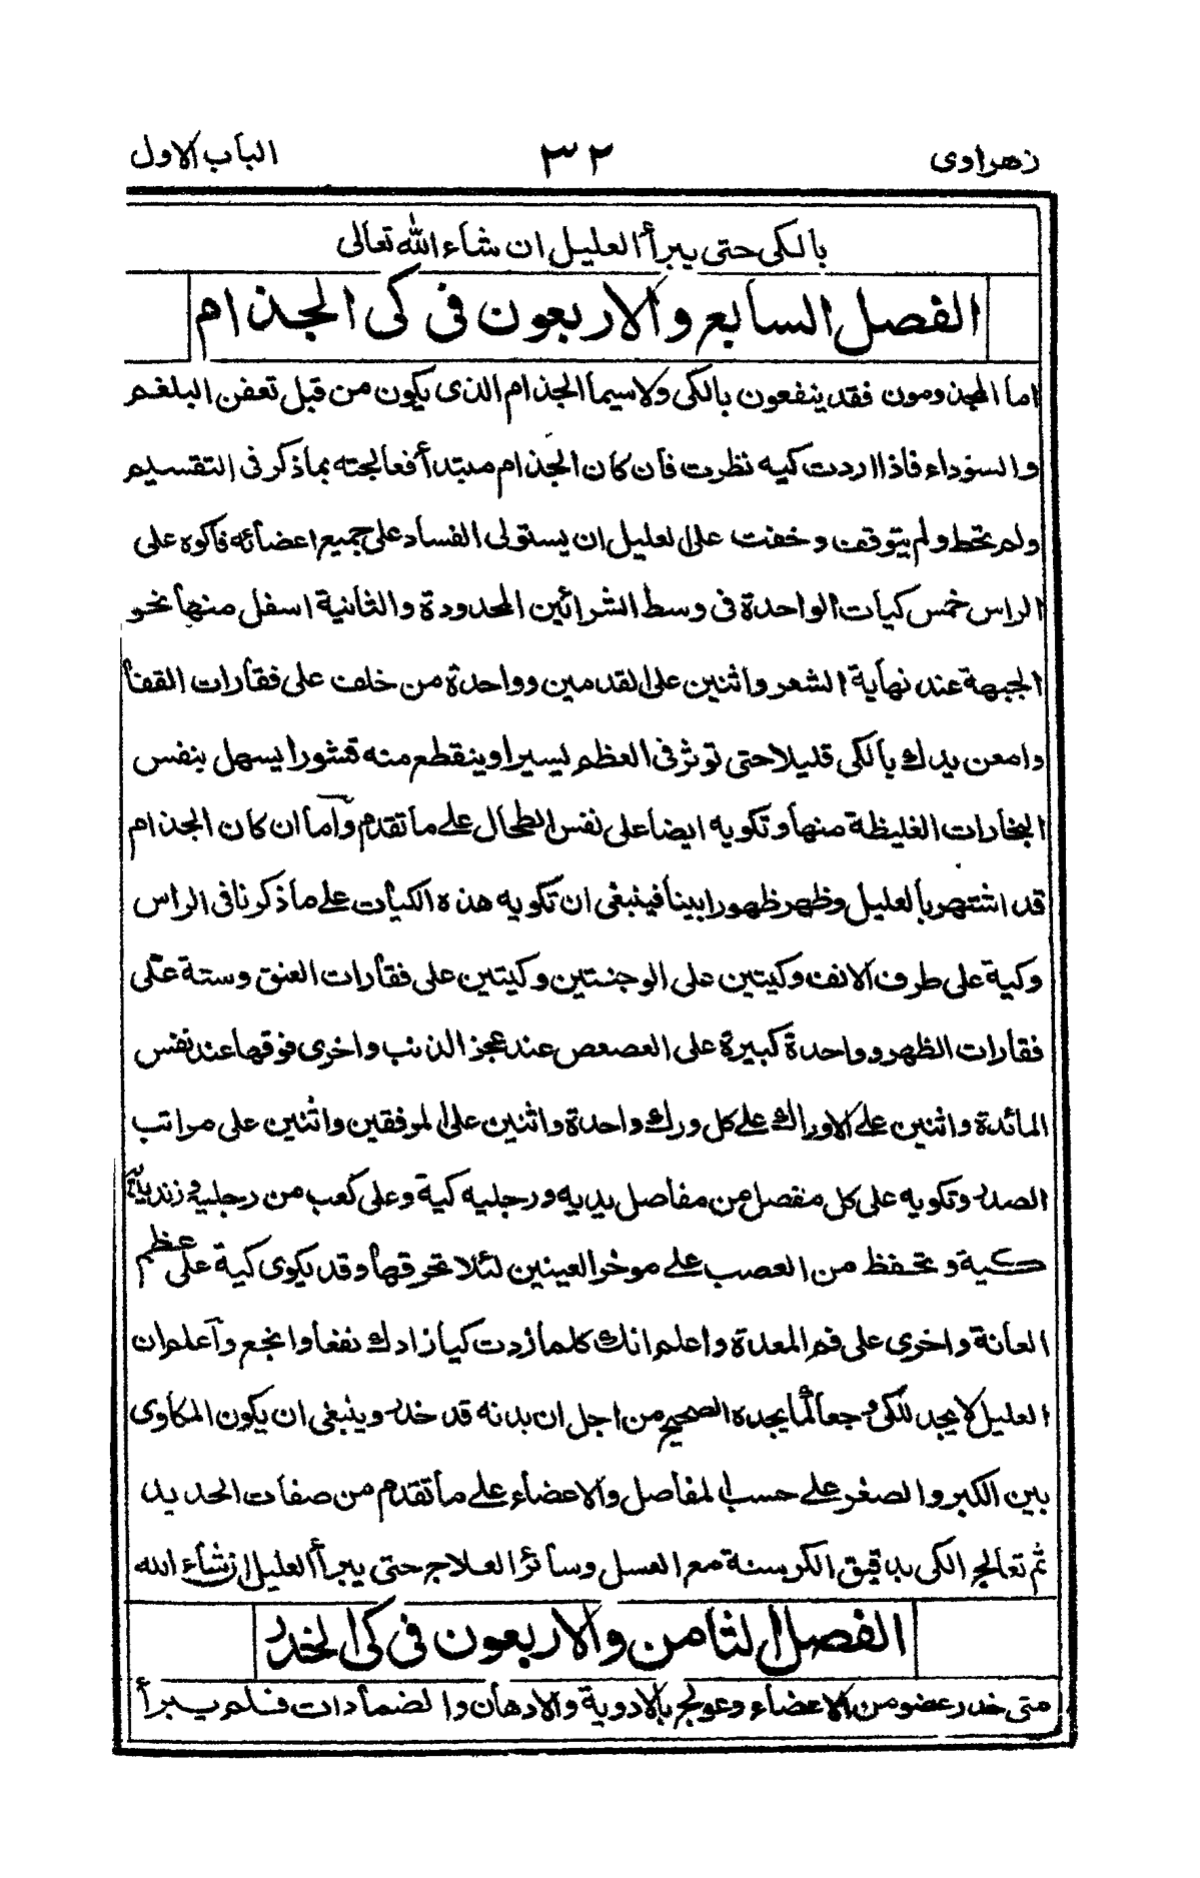 زهراوى ٣٢ الباب الاول
بالكى حتى يبرأ العليل ان شاء الله تعالى
الفصل السابع والاربعون فى كى الجذام
اما المجذومون فقد ينفعون بالكى ولاسيما الجذام الذى يكون من قبل تعفن البلغم
والسوداء فاذا اردت كيه نظرت فان كان الجذام مبتدأ فعالجته بما ذكر فى التقسيم
ولم يحط ولم يتوقف وخفت على العليل ان يستولى الفساد على جميع اعضائه فاكوه على
الراس خمس كيات الواحدة فى وسط الشرائين المحدودة والثانية اسفل منها نحو
الجبهة عند نهاية الشعر واثنين على القدمين وواحدة من خلف على فقارات القفا
وامعن يدك بالكى قليلا حتى توثر فى العظم يسيرا وينقطع منه قشورا يسهل بنفس
البخارات الغليظة منها وتكويه ايضا على نفس الطحال على ما تقدم وآما ان كان الجذام
قد اشتهر بالعليل وظهر ظهورا بينا فينبغى ان تكويه هذه الكيات على ما ذكرنا فى الراس
وكية على طرف الانف وكيتين على الوجنتين وكيتين على فقارات العنق وستة على
فقارات الظهر وواحدة كبيرة على العصعص عند عجز الذنب واخرى فوقها عند نفس
المائدة واثنين على الاوراك على كل ورك واحدة واثنين على المرفقين واثنين على مراتب
الصدر وتكويه على كل مفصل من مفاصل يديه ورجليه كية وعلى كعب من رجليه وزنديديه
كية وتحفظ من العصب على موخر العينين لئلا تحرقها وقد يكوى كية على عظم
العانة واخرى على فم المعدة واعلم انك كلما زدت كيا زادك نفعا وانجع وآعلم ان
العليل لا يجد للكى وجعا لما يجده الصحيح من اجل ان بدنه قد خدر وينبغى ان يكون المكاوى
بين الكبر والصغر على حسب المفاصل والاعضاء على ما تقدم من صفات الحديد
ثم تعالج الكى بدقيق الكرسنة مع العسل وسائر العلاج حتى يبرأ العليل ان شاء الله
الفصل الثامن والاربعون فى كى الخدر
متى خدر عضو من الاعضاء وعولج بالادوية والادهان والضمادات فلم يبرأ